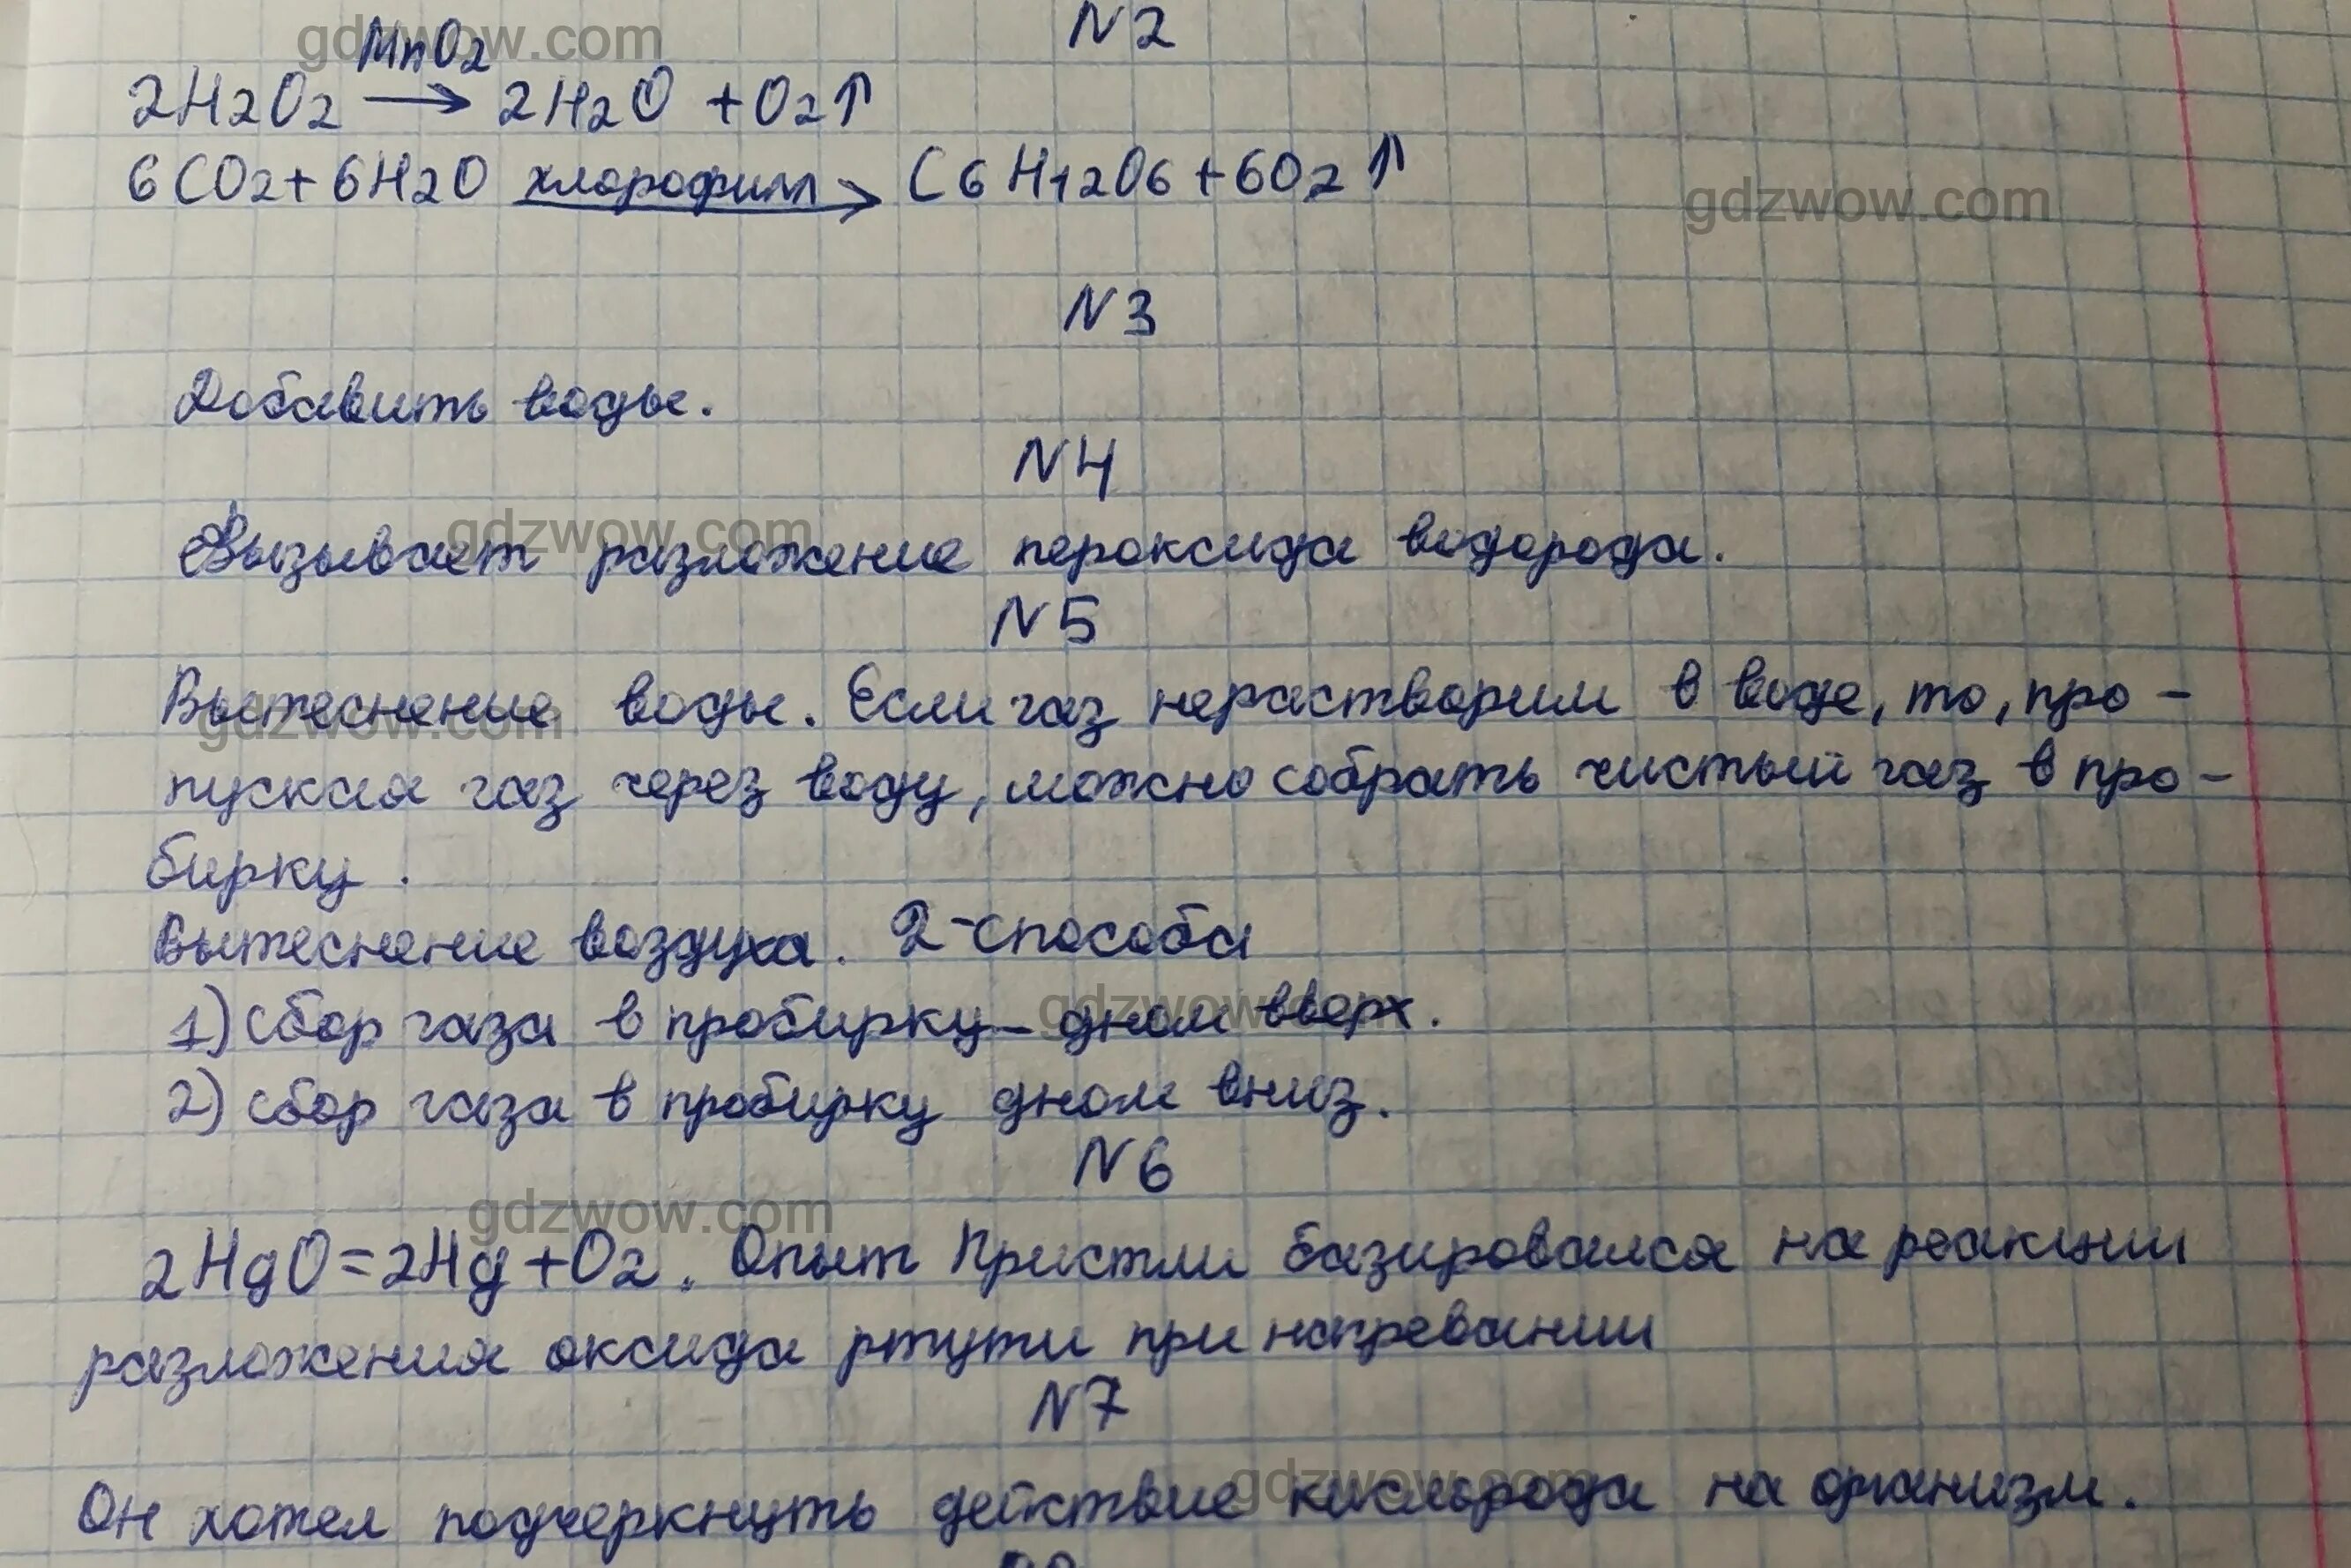 gdzwow.com
N2
MnO2
2H2O2 → 2H2O + O2↑
6CO2 + 6H2O хлорофилл → C6H12O6 + 6O2↑
gdzwow.com
N3
Добавить воды.
N4
gdzwow.com
Вызывает разложение пероксида водорода.
N5
Вытеснение воды. Если газ нерастворим в воде, то, про-
gdzwow.com
пуская газ через воду, можно собрать чистый газ в про-
бирку.
Вытеснение воздуха. 2-способа
gdzwow.com
1) сбор газа в пробирку – дном вверх.
2) сбор газа в пробирку дном вниз.
N6
gdzwow.com
2HgO = 2Hg + O2. Опыт Пристли базировался на реакции
разложения оксида ртути при нагревании
N7
gdzwow.com
Он хотел подчеркнуть действие кислорода на организм.